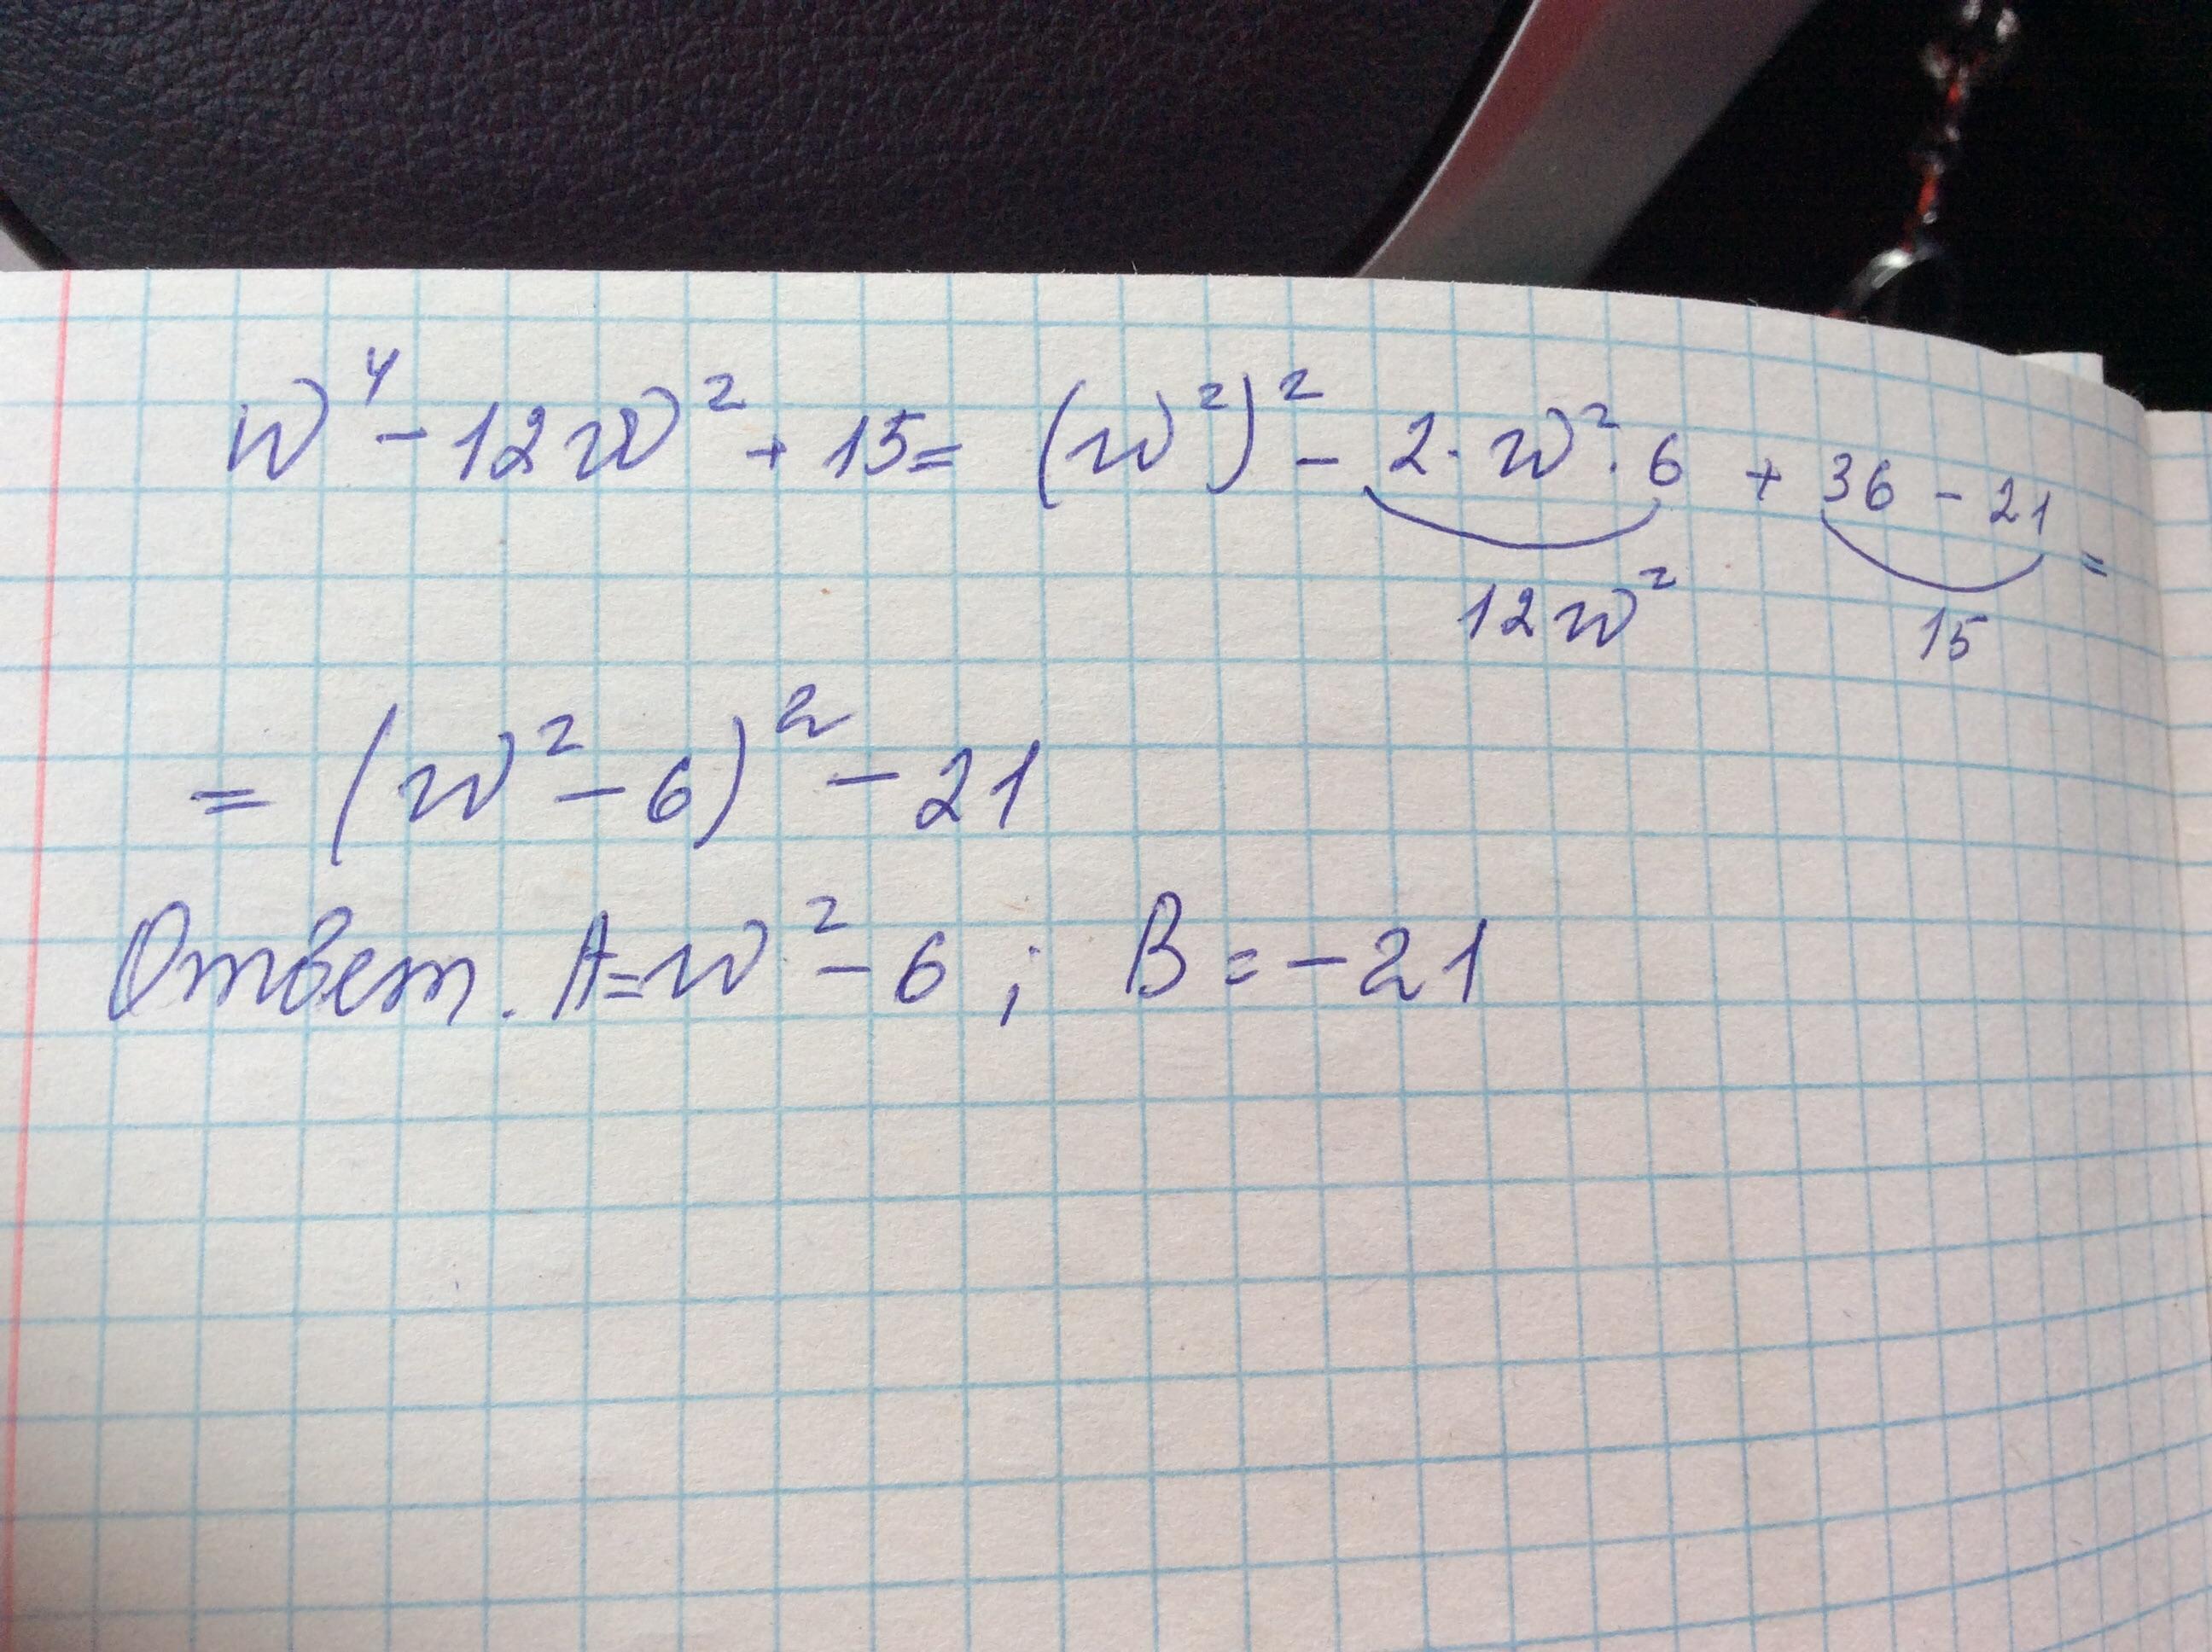 w⁴ - 12w² + 15 = (w²)² - 2 · w² · 6 + 36 - 21 =
12w² 15
= (w² - 6)² - 21
Ответ. A = w² - 6 ; B = -21